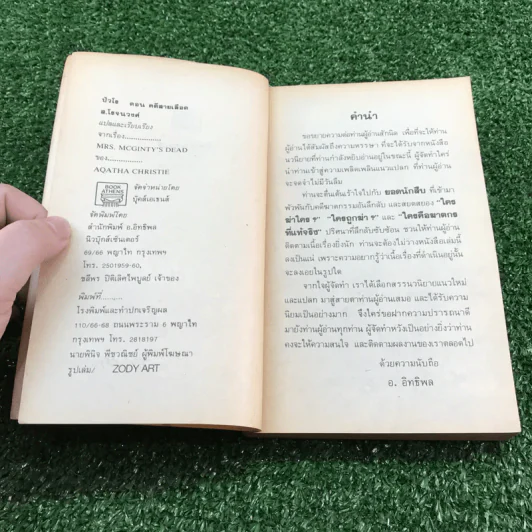 ปัวโร ตอน คดีสายเลือด
ส.โรจนวงศ์
แปลและเรียบเรียง
จากเรื่อง...............
MRS. MCGINTY'S DEAD
ของ...............
AQATHA CHRISTIE
BOOK
ATHENS
จัดจำหน่ายโดย
บุ๊คส์เอเธนส์
จัดพิมพ์โดย
สำนักพิมพ์ อ.อิทธิพล
นิวบุ๊คส์เซ็นเตอร์
69/66 พญาไท กรุงเทพฯ
โทร. 2501959-60,
ชลีพร ปิติเลิศไพบูลย์ เจ้าของ
พิมพ์ที่........
โรงพิมพ์และทำปกเจริญผล
110/66-68 ถนนพระราม 6 พญาไท
กรุงเทพฯ โทร. 2818197
นายพินิจ พืชวณิชย์ ผู้พิมพ์โฆษณา
รูปเล่ม/ ZODY ART
คำนำ
ขอขยายความต่อท่านผู้อ่านสักนิด เพื่อที่จะให้ท่าน
ผู้อ่านได้สัมผัสถึงความหรรษา ที่จะได้รับจากหนังสือ
นวนิยายที่ท่านกำลังหยิบอ่านอยู่ในขณะนี้ ผู้จัดทำใคร่
นำท่านเข้าสู่ความเพลิดเพลินแนวแปลก ที่ท่านผู้อ่าน
จะจดจำไม่มีวันลืม
ท่านจะตื่นเต้นเร้าใจไปกับ ยอดนักสืบ ที่เข้ามา
พัวพันกับคดีฆาตกรรมอันลึกลับ และสยดสยองของ "ใคร
ฆ่าใคร ?" "ใครถูกฆ่า ?" และ "ใครคือฆาตกร
ที่แท้จริง" ปริศนาที่ลึกลับซับซ้อน ชวนให้ท่านผู้อ่าน
ติดตามเนื้อเรื่องยิ่งนัก ท่านจะต้องไม่วางหนังสือเล่มนี้
ลงเป็นแน่ เพราะความอยากรู้ว่าเนื้อเรื่องที่ดำเนินอยู่นั้น
จะลงเอยในรูปใด
จากใจผู้จัดทำ เราได้เลือกสรรนวนิยายแนวใหม่
และแปลก มาสู่สายตาท่านผู้อ่านเสมอ และได้รับความ
นิยมเป็นอย่างมาก จึงใคร่ขอฝากความปรารถนาดี
มายังท่านผู้อ่านทุกท่าน ผู้จัดทำหวังเป็นอย่างยิ่งว่าท่าน
คงจะให้ความสนใจ และติดตามผลงานของเราตลอดไป
ด้วยความนับถือ
อ. อิทธิพล